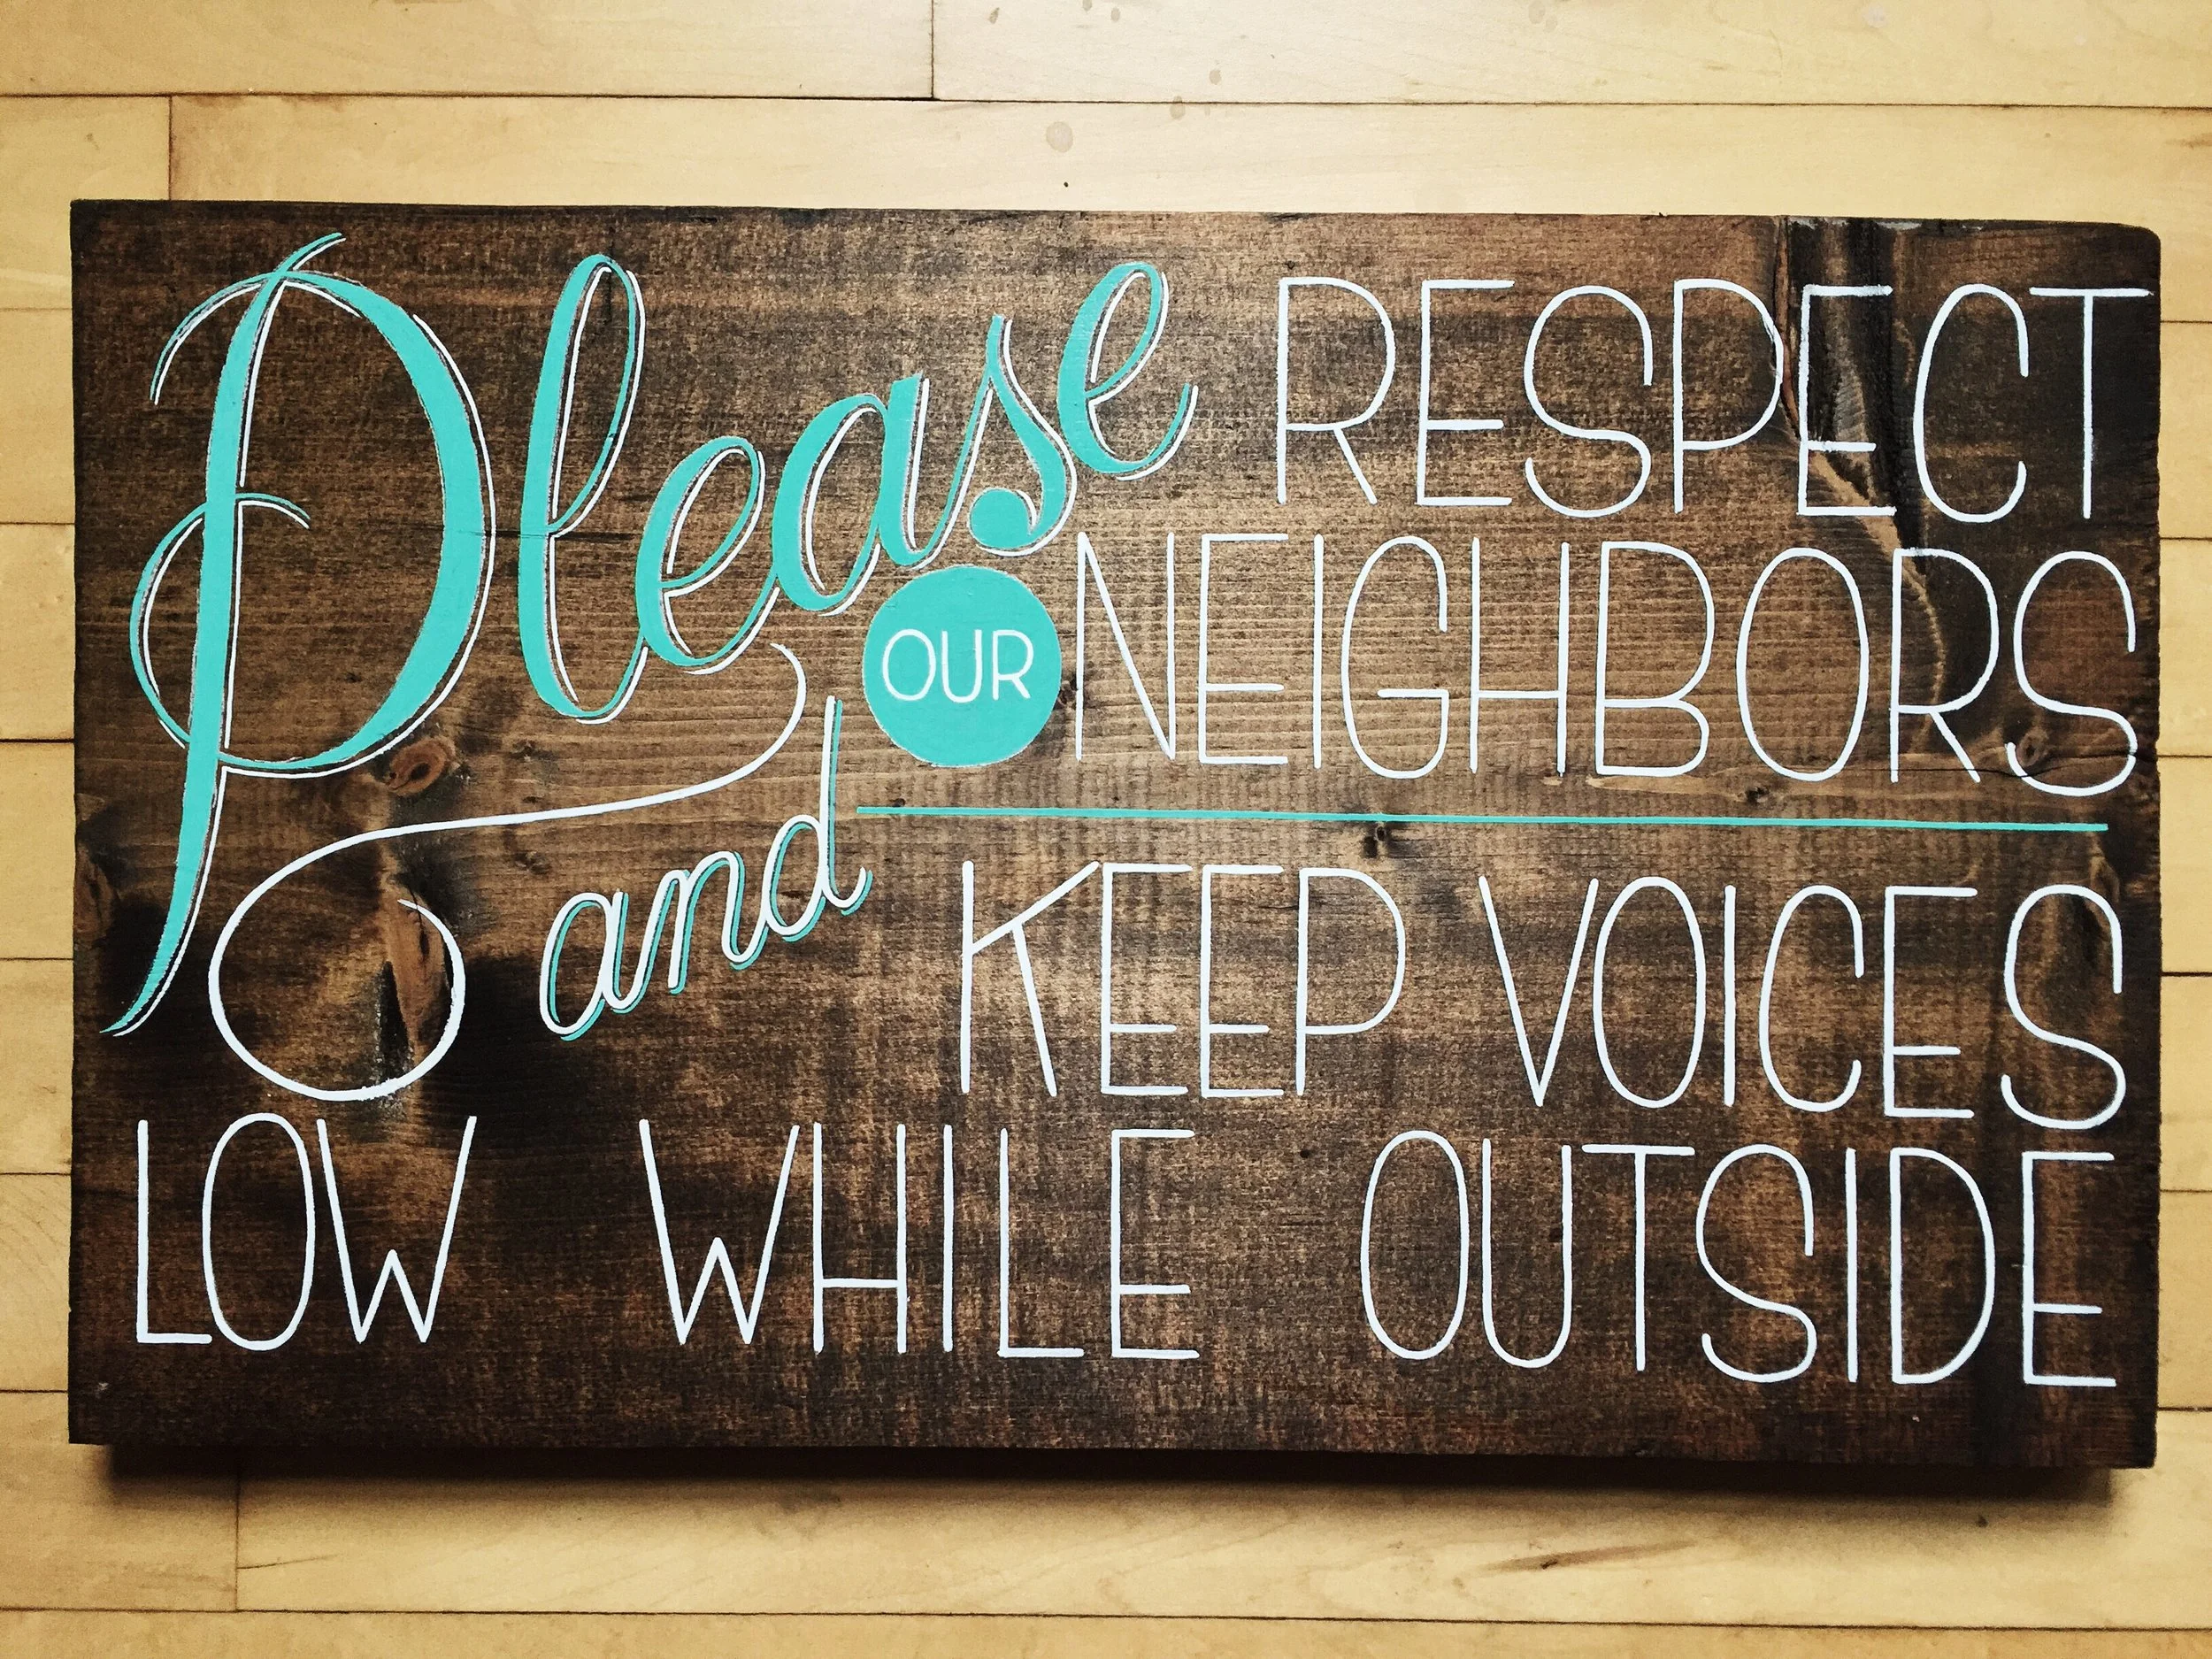 Please RESPECT
OUR NEIGHBORS
and KEEP VOICES
LOW WHILE OUTSIDE